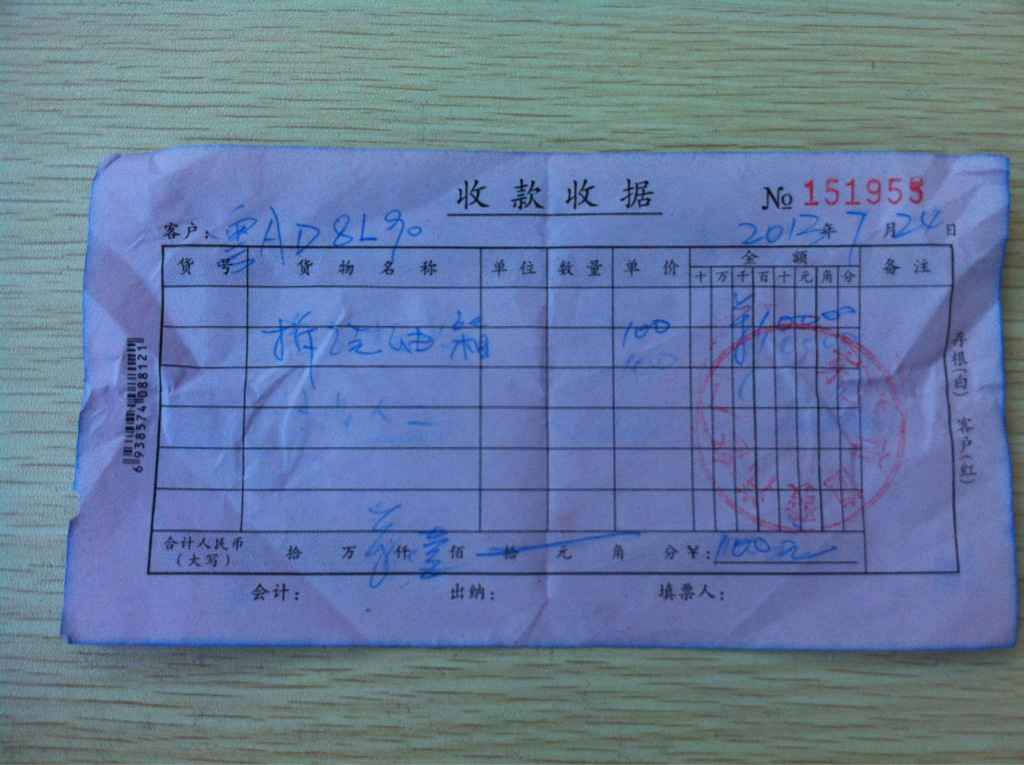 收款收据
№ 151955
客户: 粤AD8L90 2013年7月24日
货号 货物名称 单位 数量 单价 金额 备注
十 万 千 百 十 元 角 分
拆洗油箱 100 ¥10000
合计人民币(大写) 拾 万 仟 壹佰 拾 元 角 分 ¥: 100元
会计: 出纳: 填票人:
存根(白) 客户(红)
6 938574 088121